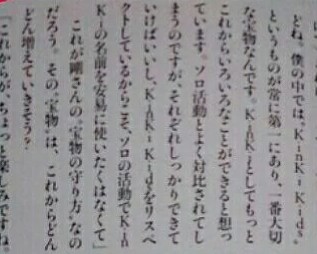 どね。僕の中では、KinKi Kids。
というものが常に第一にあり、一番大切
な宝物なんです。KinKiとしてもっと
これからいろいろなことができると想っ
ています。ソロ活動とよく対比されてし
まうのですが、それぞれしっかりできて
いけばいいし、KinKi Kidsをリスペ
クトしているからこそ、ソロの活動でKin
Kiの名前を安易に使いたくはなくて」
これが剛さんの〝宝物の守り方〟なの
だろう。その〝宝物〟は、これからどん
どん増えていきそう?
「これからが、ちょっと楽しみですね。